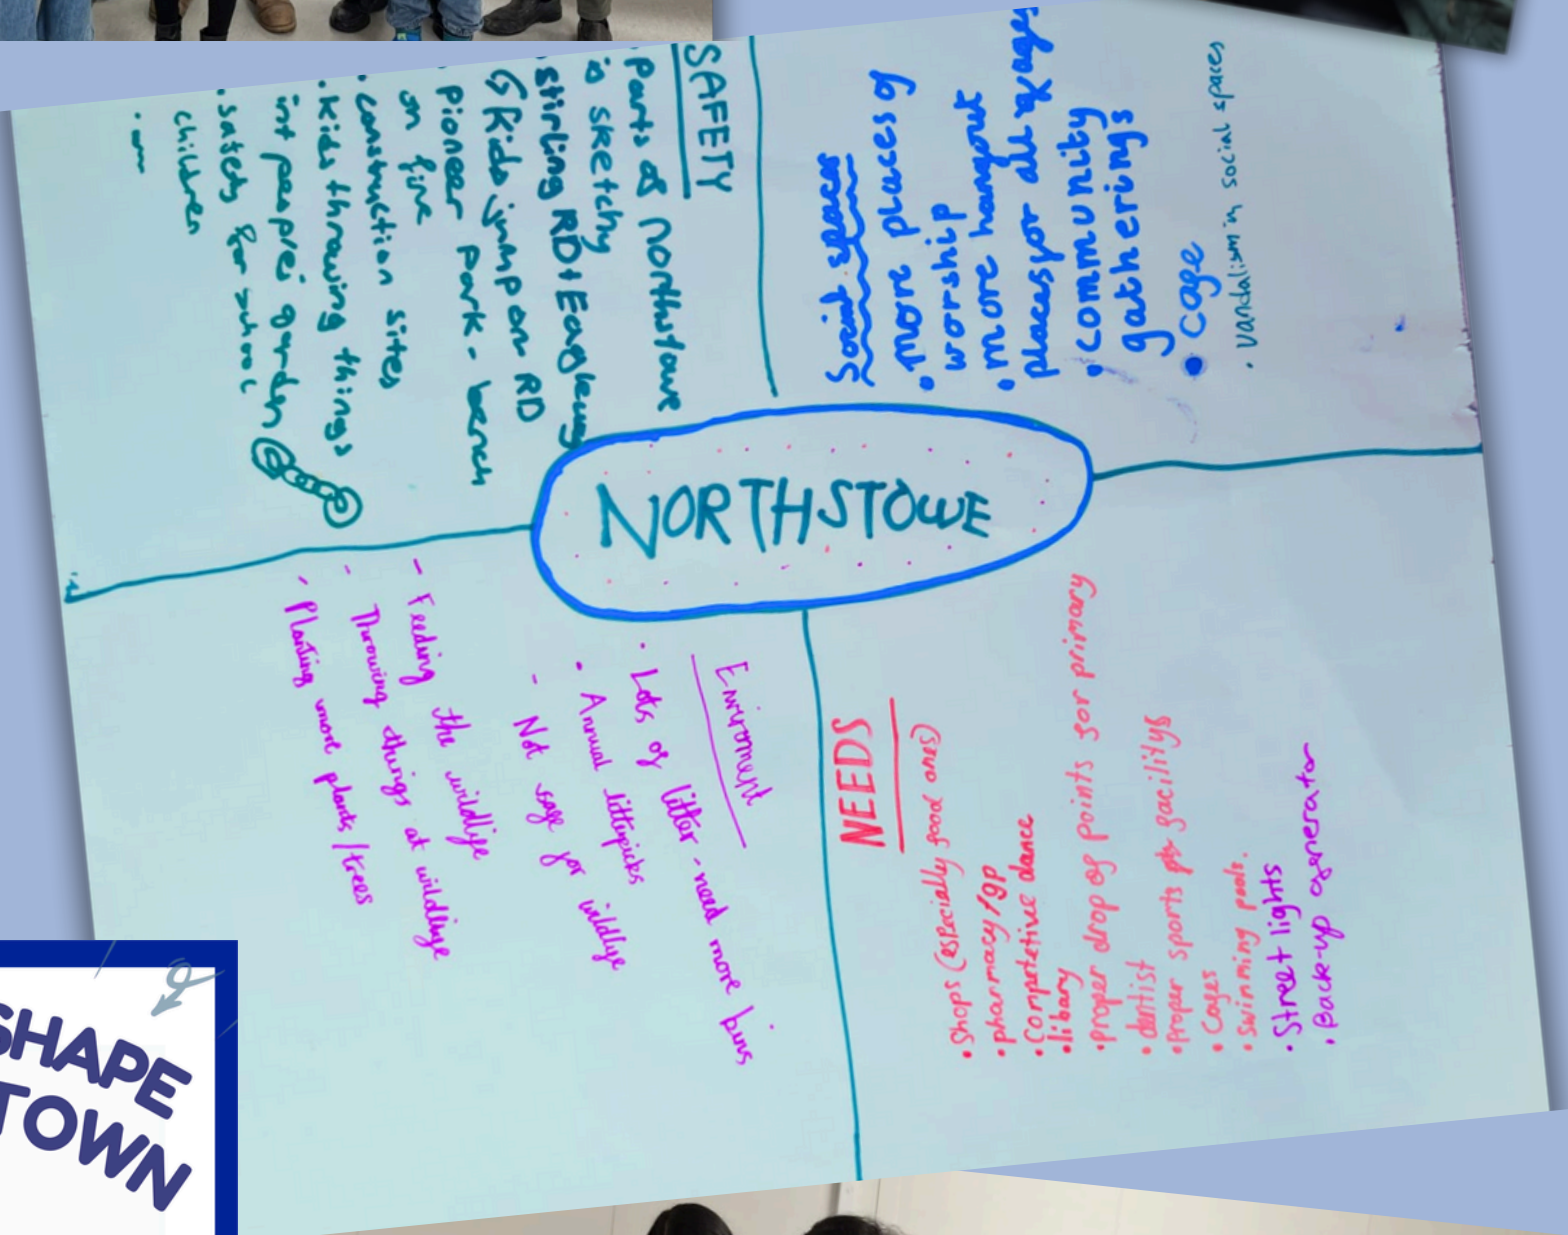 NORTHSTOWE
SAFETY
• Parts of Northstowe
is sketchy
• Stirling RD + Eagleway
Kids jump on RD
• Pioneer Park - bench
on fire
• construction sites
• kids throwing things
int peoples garden
• safety for school
children
Social spaces
• more places of
worship
• more hangout
places for all yages
• community
gatherings
• Cafe
• vandalism in social spaces
Enviroment
• Lots of litter - need more bins
• Annual litterpicks
- Not safe for wildlife
- Feeding the wildlife
- Throwing things at wildlife
- Planting more plants/trees
NEEDS
• Shops (especially good ones)
• pharmacy/gp
• Competetive dance
• libary
• proper drop of points for primary
• dentist
• proper sports facilitys
• Cafes
• swimming pools.
• Street lights
• Back-up generator
SHAPE
TOWN